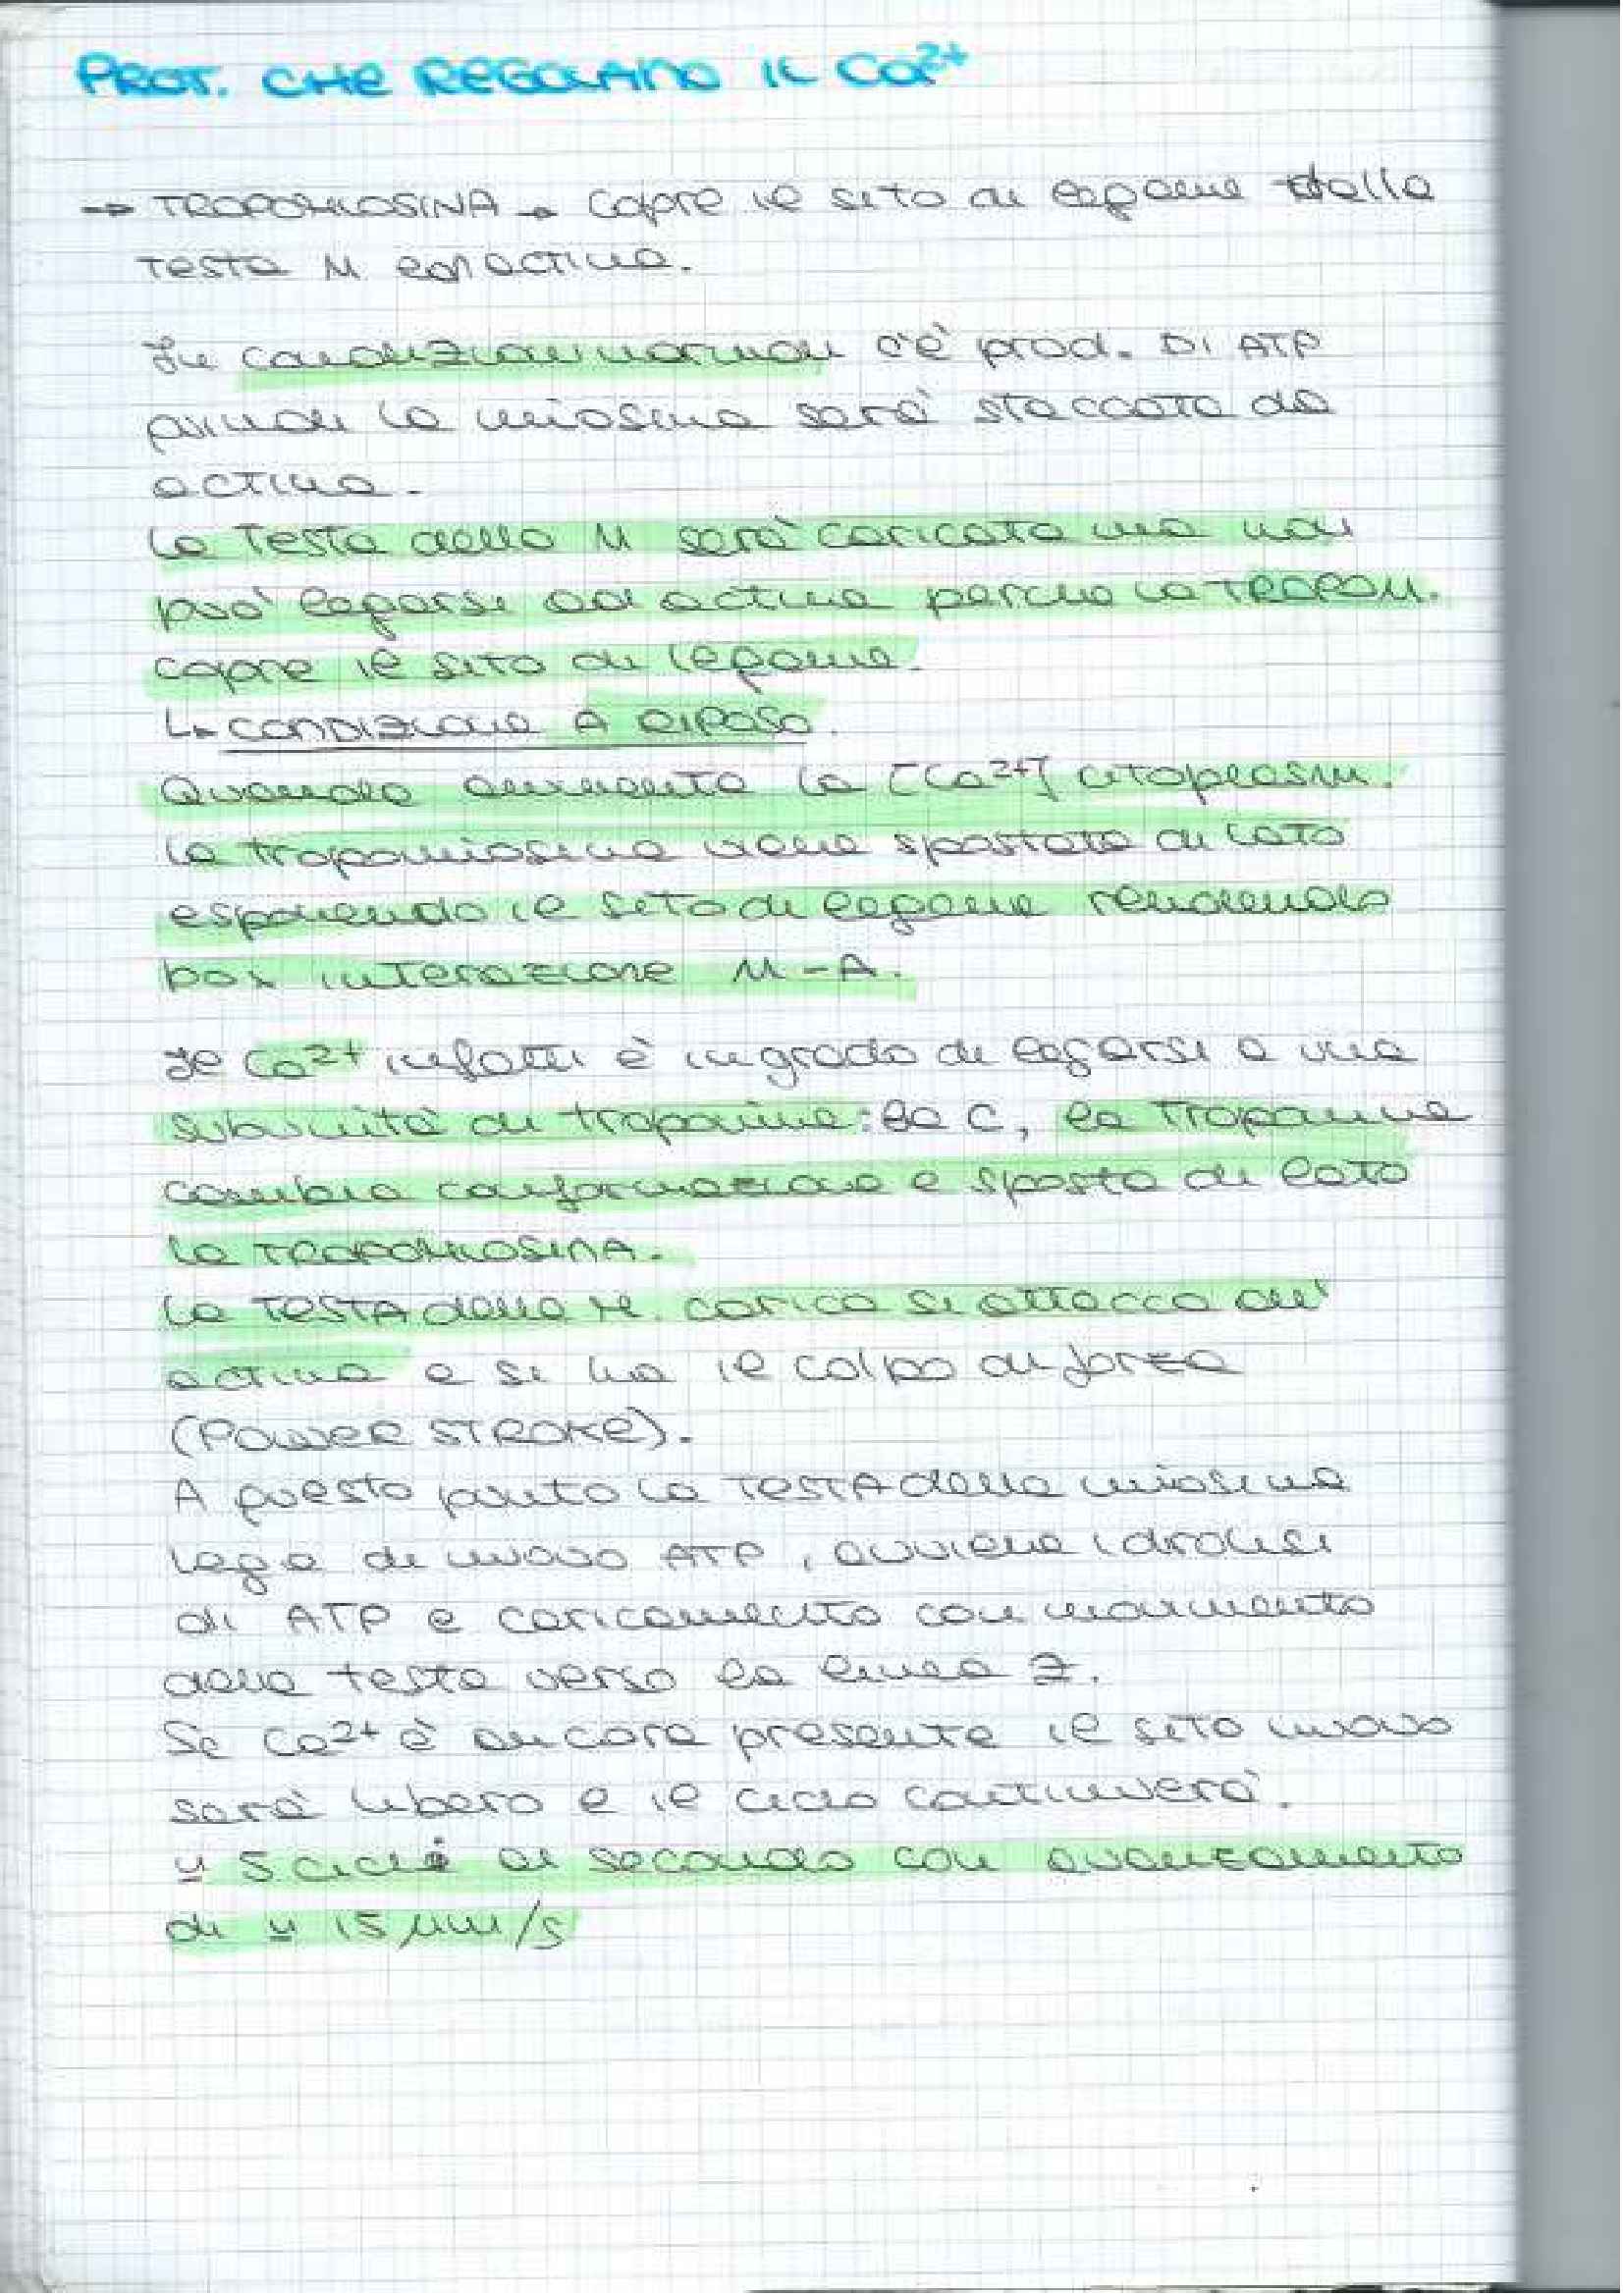 PROT. CHE REGOLANO IL Ca²⁺
→ TROPOMIOSINA → Copre il sito di legame della
testa M con actina.
In condizioni normali c'è prod. DI ATP
quindi la miosina sarà staccata da
actina.
La testa della M sarà caricata ma non
può legarsi ad actina perchè la TROPOM.
copre il sito di legame.
↳ CONDIZIONE A RIPOSO.
Quando aumenta la [Ca²⁺] citoplasm.
la tropomiosina viene spostata di lato
esponendo il sito di legame rendendo
pox interazione M-A.
Il Ca²⁺ infatti è in grado di legarsi a una
subunità di troponina: la C, la Troponina
cambia conformazione e sposta di lato
la TROPOMIOSINA.
La TESTA della M. carica si attacca all'
actina e si ha il colpo di forza
(POWER STROKE).
A questo punto la TESTA della miosina
lega di nuovo ATP, avviene idrolisi
di ATP e caricamento con movimento
della testa verso la linea Z.
Se Ca²⁺ è ancora presente il sito nuovo
sarà libero e il ciclo continuerà.
≃ 5 cicli al secondo con avanzamento
di ≃ 15 µm/s